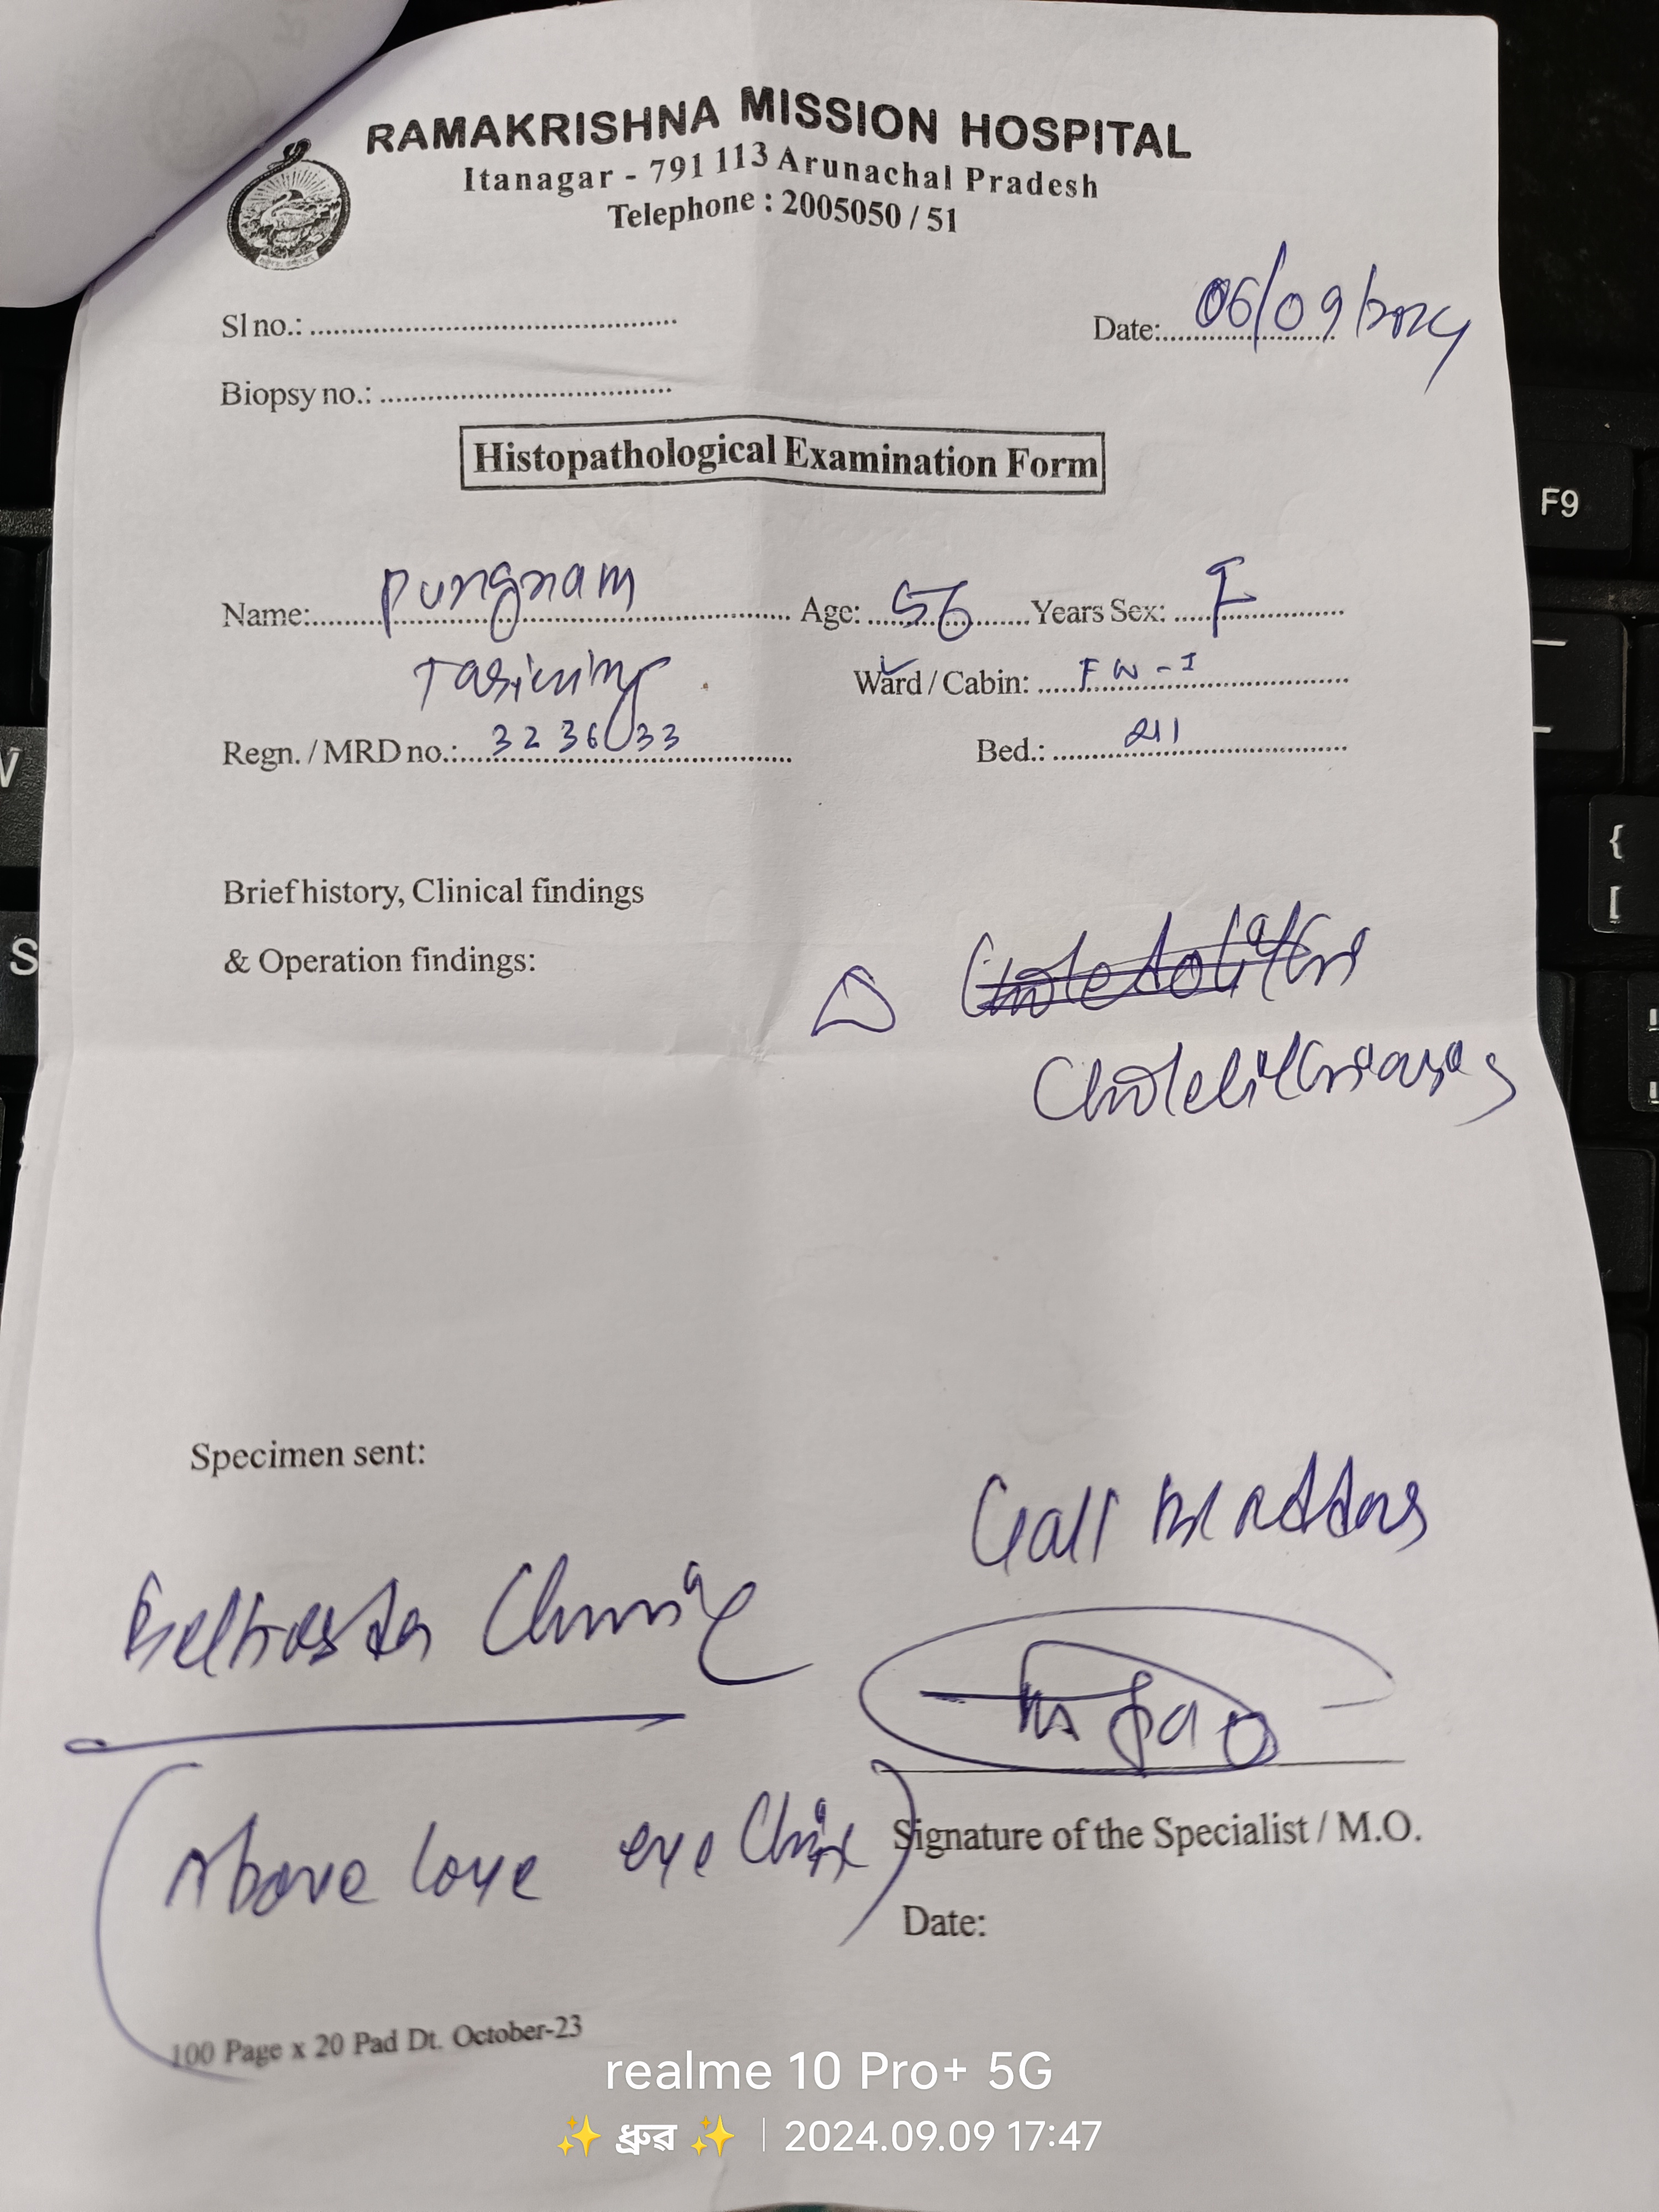 RAMAKRISHNA MISSION HOSPITAL
Itanagar - 791 113 Arunachal Pradesh
Telephone : 2005050 / 51
Sl no.: ........................................ Date: 06/09/2024
Biopsy no.: ........................................
Histopathological Examination Form
Name: Pungnam Age: 56 Years Sex: F
Ward / Cabin: FW-I
Regn. / MRD no.: 3236033 Bed.: 211
Brief history, Clinical findings
& Operation findings:
△
Cholelithiasis
Specimen sent:
Gall bladder
Clinic
(Above Love eye Clinic)
Signature of the Specialist / M.O.
Date:
100 Page x 20 Pad Dt. October-23
F9
{
[
S
realme 10 Pro+ 5G
✨ ধ্ৰুৱ ✨ | 2024.09.09 17:47